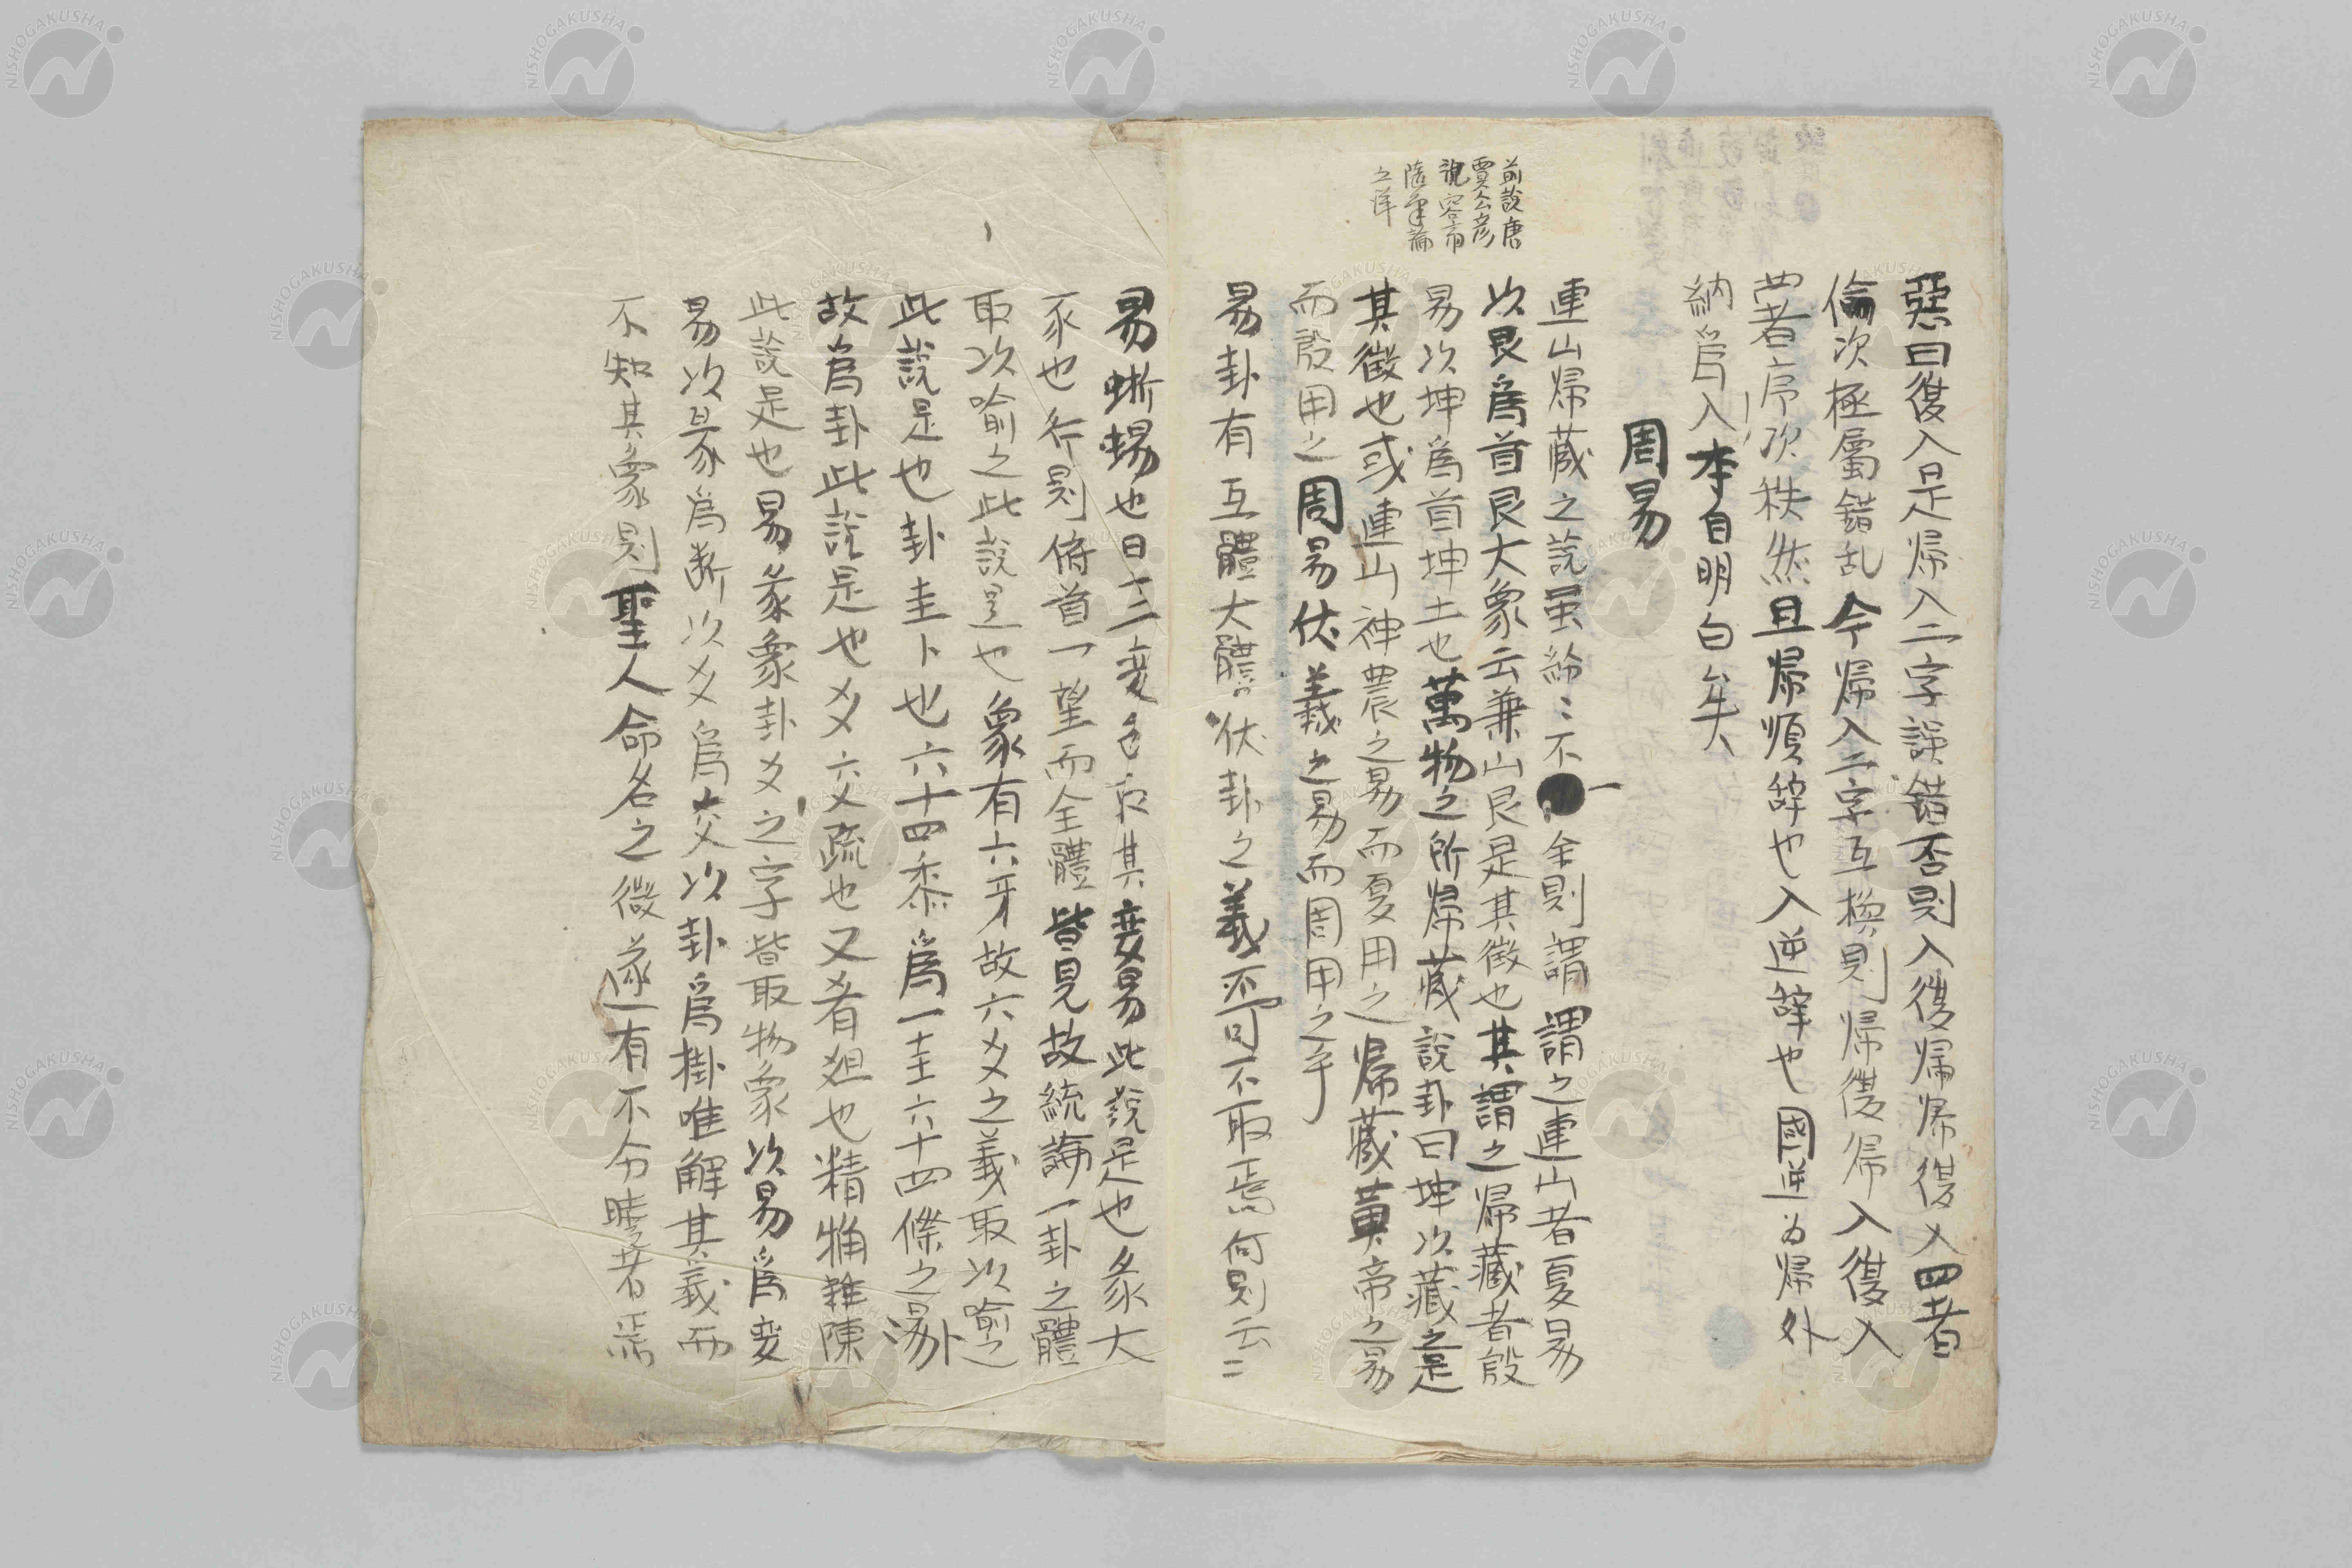 惡曰復入是帰入二字誤錯否則入復帰帰復入四者
倫次極屬錯乱今帰入二字互換則帰復帰入復入
四者序次秩然且帰順辞也入逆辞也國逆為帰外
納爲入本自明白矣
周易
前說唐
賈公彦
說容斎
随筆論
之詳
連山帰藏之說虽紛〻不一余則謂謂之連山者夏易
以艮爲首艮大象云兼山艮是其徴也其謂之帰藏者殷
易以坤爲首坤土也萬物之所帰藏說卦曰坤以藏之是
其徴也或連山神農之易而夏用之帰藏黄帝之易
而殷用之周易伏義之易而周用之乎
易卦有互體大體伏卦之義不可不取焉何則云〻
易蜥蜴也日十二変色取其変易此說是也彖大
豕也行則俯首一望而全體皆見故統論一卦之體
取以喻之此說是也象有六牙故六爻之義取以喻之
此說是也卦圭卜也六十四黍爲一圭六十四條之
故爲卦此說是也爻交疏也又肴爼也精粗雜陳
此說是也易彖象卦爻之字皆取物象以易爲変
易以彖爲断以爻爲交以卦爲掛唯解其義而
不知其象則聖人命名之微遂有不令曉者焉